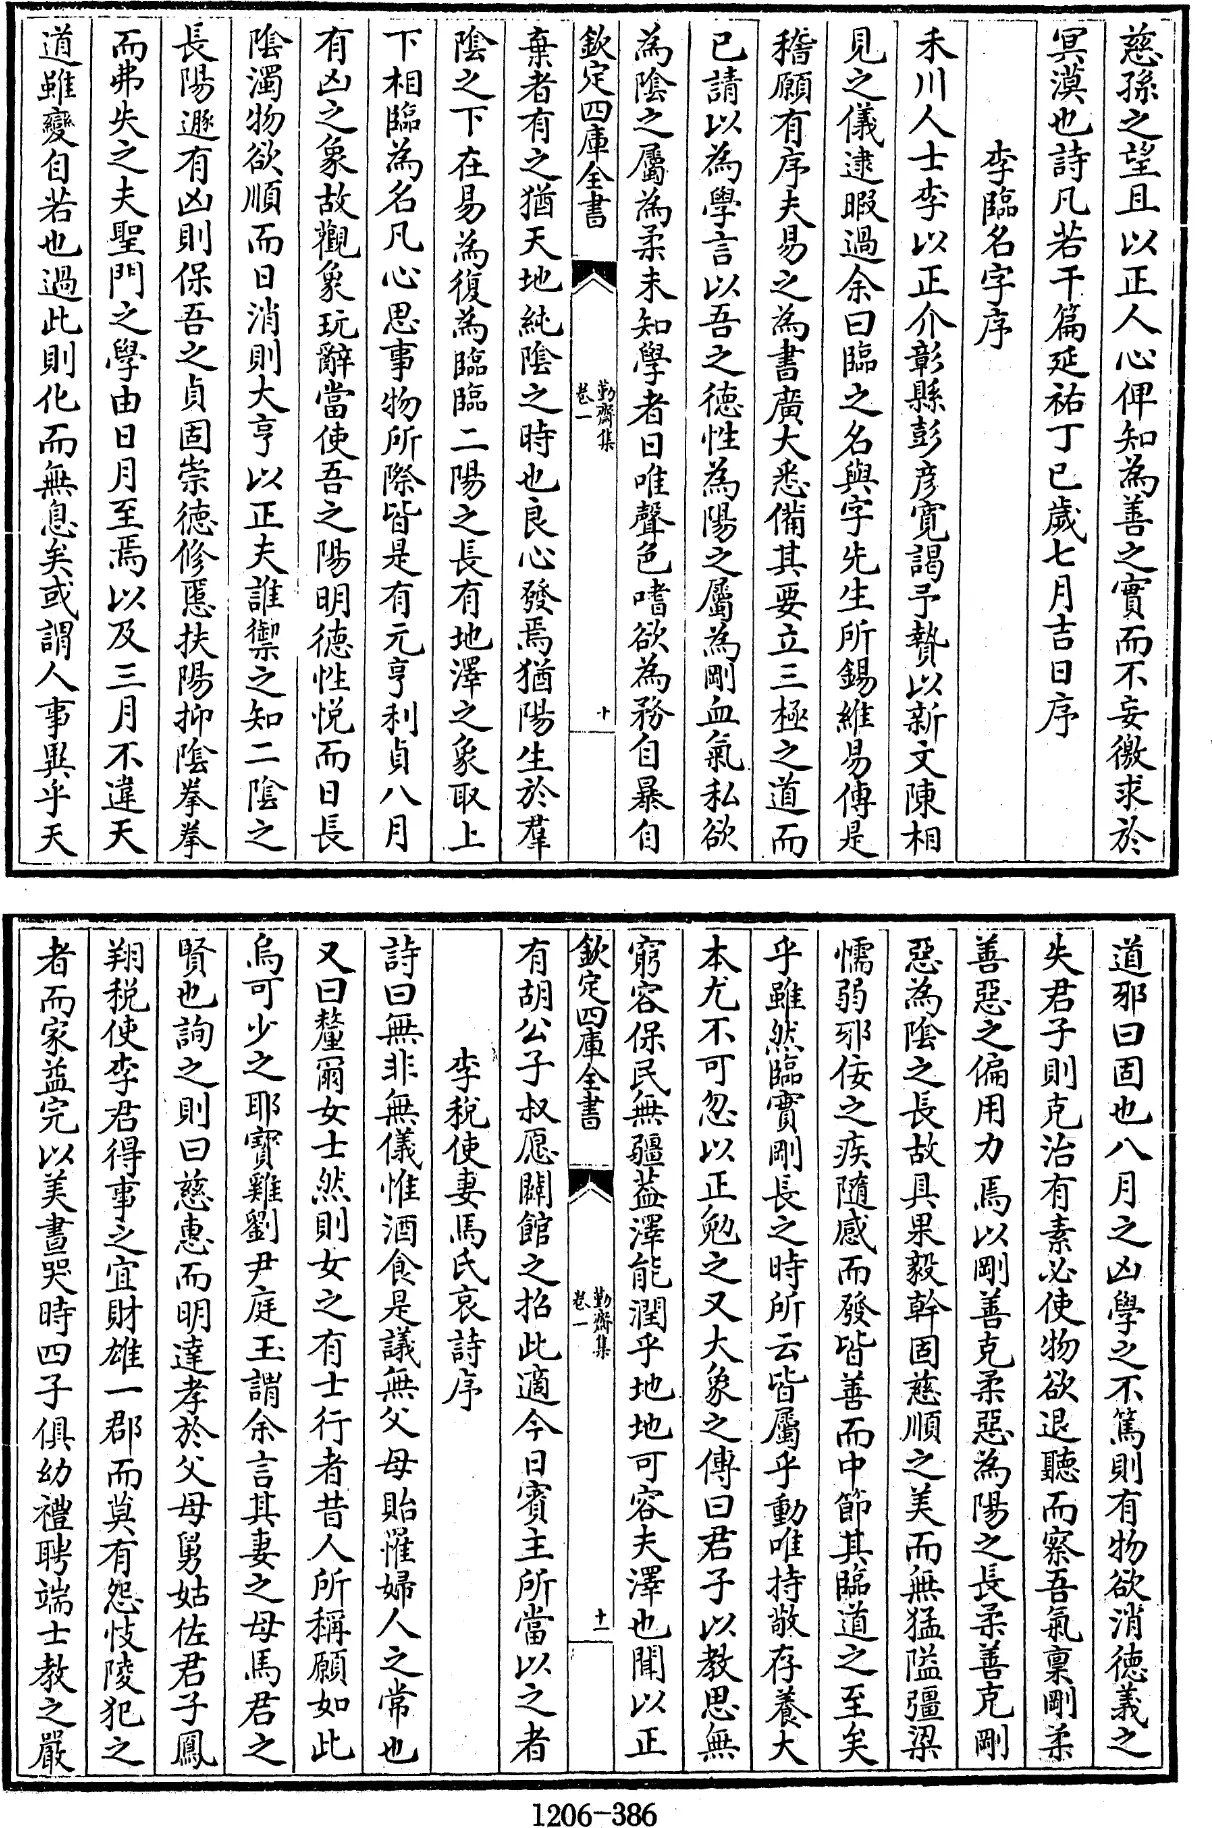 慈孫之望且以正人心俾知為善之實而不妄徼求於
冥漠也詩凡若干篇延祐丁巳歲七月吉日序
李臨名字序
耒川人士李以正介彰縣彭彦寛謁予贄以新文陳相
見之儀逮暇過余曰臨之名與字先生所錫維易傳是
稽願有序夫易之為書廣大悉備其要立三極之道而
已請以為學言以吾之德性為陽之屬為剛血氣私欲
為陰之屬為柔未知學者日唯聲色嗜欲為務自暴自
欽定四庫全書
勤齋集
卷一
十
棄者有之猶天地純陰之時也良心發焉猶陽生於羣
陰之下在易為復為臨臨二陽之長有地澤之象取上
下相臨為名凡心思事物所際皆是有元亨利貞八月
有凶之象故觀象玩辭當使吾之陽明德性悦而日長
陰濁物欲順而日消則大亨以正夫誰禦之知二陰之
長陽遯有凶則保吾之貞固崇德修慝扶陽抑陰拳拳
而弗失之夫聖門之學由日月至焉以及三月不違天
道雖變自若也過此則化而無息矣或謂人事異乎天
道邪曰固也八月之凶學之不篤則有物欲消德義之
失君子則克治有素必使物欲退聽而察吾氣稟剛柔
善惡之偏用力焉以剛善克柔惡為陽之長柔善克剛
惡為陰之長故具果毅幹固慈順之美而無猛隘彊梁
懦弱邪佞之疾隨感而發皆善而中節其臨道之至矣
乎雖然臨實剛長之時所云皆屬乎動唯持敬存養大
本尤不可忽以正勉之又大象之傳曰君子以教思無
窮容保民無疆葢澤能潤乎地地可容夫澤也聞以正
欽定四庫全書
勤齋集
卷一
十一
有胡公子叔愿闢館之招此適今日賓主所當以之者
李税使妻馬氏哀詩序
詩曰無非無儀惟酒食是議無父母貽罹婦人之常也
又曰釐爾女士然則女之有士行者昔人所稱願如此
烏可少之耶寶雞劉尹庭玉謂余言其妻之母馬君之
賢也詢之則曰慈惠而明達孝於父母舅姑佐君子鳳
翔税使李君得事之宜財雄一郡而莫有怨忮陵犯之
者而家益完以美晝哭時四子俱幼禮聘端士教之嚴
1206-386